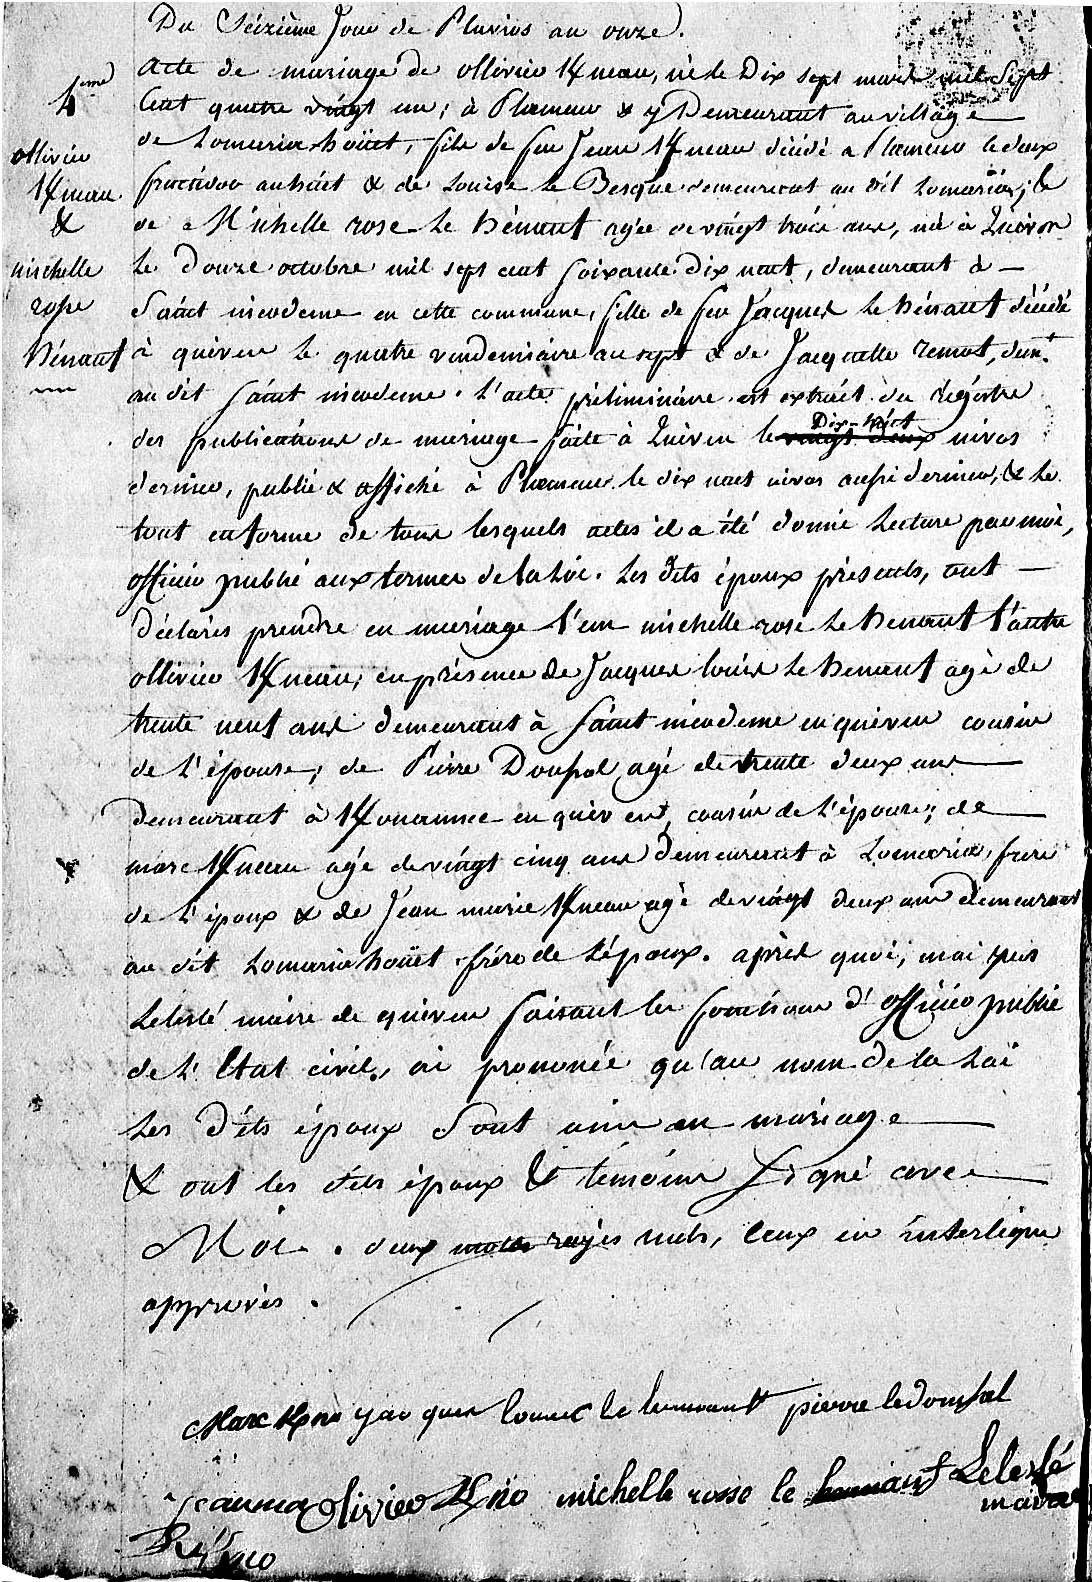 Du Séizième Jour de Pluvios an onze.
4eme
Acte de mariage de ollivier K/neau, né le Dix sept mars mil Sept
Cent quatre vingt un; à Plameur & y Demeurant au village
ollivier
K/neau
&
michelle
rose
hénaut
de Lomaria-hoüet, fils de feu Jean K/neau décédé a Plameur le deux
fructidor an huit & de Louise le Besque demeurant au dit Lomaria; &
de Michelle rose Le hénant agée de vingt trois ans, né à Quéven
Le Douze octobre mil sept cent soixante Dix neuf, demeurant à
Saint nicodeme en cette commune, fille de feu Jacques Le hénant décédé
à quéven le quatre vendemiaire an sept & de Jacquette remot, dem.t
au dit Saint nicodeme. L'acte préliminaire est extrait du régistre
des publications de mariage faite à Quéven le vingt deux Dix-huit nivos
dernier, publié & affiché à Plameur le dix neuf nivos aussi dernier, & Le
tout en forme de tous lesquels actes il a été donné Lecture par moi,
officier publié aux termes de la Loi. Les dits époux présents, ont
Déclarés prendre en mariage l'un michelle rose Le henant l'autre
ollivier K/neau; en présence de Jacques Louis Le henant agé de
trente neuf ans demeurant à Saint nicodeme en quéven cousin
de L'épouse, de Pierre Doussal agé de trente deux ans
Demeurant à K/ en quéven, cousin de L'épouse; de
marc K/neau agé de vingt cinq ans Demeurant à Lomaria, frere
de L'époux & de Jean marie K/neau agé de vingt deux ans Demeurant
au dit Lomaria hoüet frére de L'époux. après quoi, moi yves
Lelesté maire de quéven faisant les fonctions d'officier publié
de L'Etat civil, ai prononcé qu'au nom de la Loi
Les Dits époux Sont unis en mariage
& ont les dits époux & témoins Signé avec
Moi. deux mots rayés nuls, ceux en interligne
approuvés.
Marc K/no jacques Louis le henant pierre ledoussal
jeanma olivier K/no michelle rosse le hennant Lelesté
maire